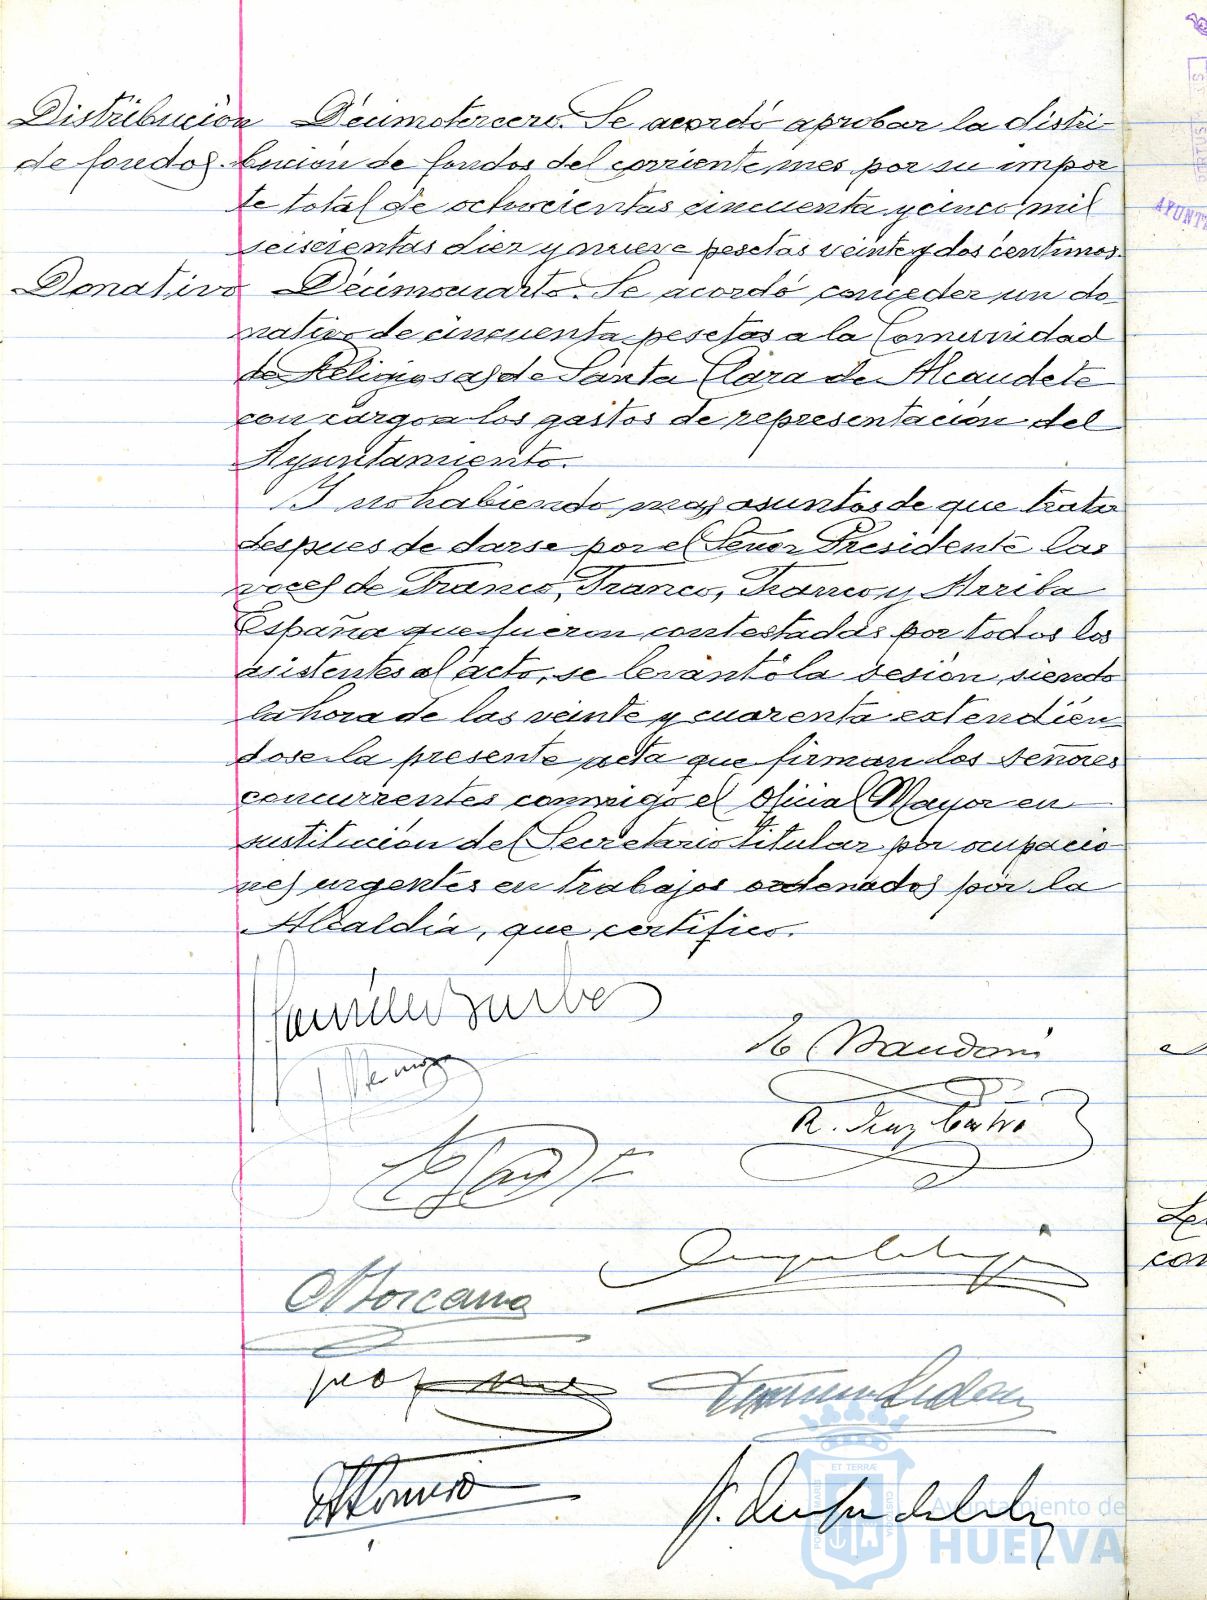 Distribución Décimotercero. Se acordó aprobar la distri-
de fondos. bución de fondos del corriente mes por su impor
te total de ochocientas cincuenta y cinco mil
seiscientas diez y nueve pesetas veinte y dos centimos.
Donativo Décimocuarto. Se acordó conceder un do
nativo de cincuenta pesetas a la Comunidad
de Religiosas de Santa Clara de Alcaudete
con cargo a los gastos de representación del
Ayuntamiento.
Y no habiendo mas asuntos de que tratar
despues de darse por el Señor Presidente las
voces de Franco, Franco, Franco y Arriba
España que fueron contestadas por todos los
asistentes al acto, se levantó la sesión, siendo
la hora de las veinte y cuarenta extendién
dose la presente acta que firman los señores
concurrentes conmigo el Oficial Mayor en
sustitución del Secretario titular por ocupacio
nes urgentes en trabajos ordenados por la
Alcaldía, que certifico.
R. Diaz Castro
ET TERRÆ
Ayuntamiento de
HUELVA